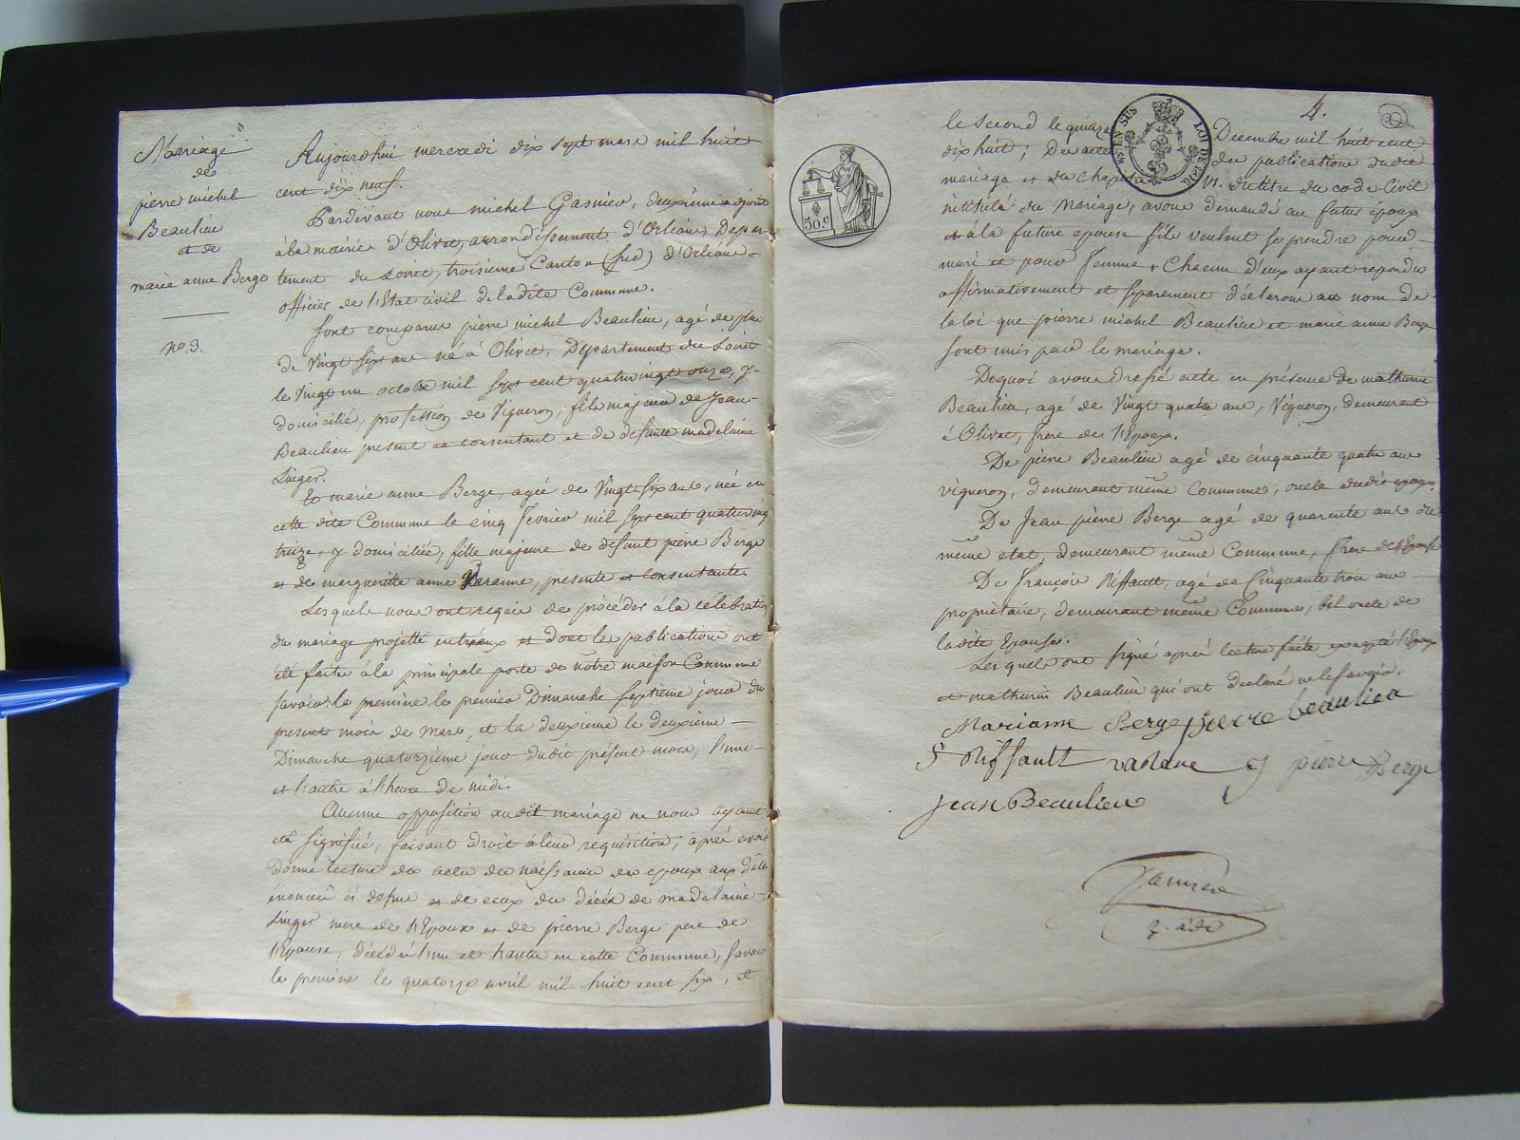 Mariage
de
pierre michel
Beaulieu
et de
marie anne Berge
no. 3.
Aujourdhui mercredi dix sept mars mil huit
cent dix neuf.
Pardevant nous michel Gasnier, deuxième adjoint
à la mairie d'Olivet, arrondissement d'Orléans Depar
tement du Loiret, troisième Canton (sud) d'Orléans
officier de l'Etat civil de ladite Commune.
Sont comparus pierre michel Beaulieu, agé de plus
de Vingt sept ans né à Olivet, Département du Loiret
le Vingt un octobre mil sept cent quatrevingt onze, y
domicilié, profession de Vigneron, fils majeur de Jean
Beaulieu present et consentant et de defunte madelaine
Linger.
Et marie anne Berge, agée de Vingt six ans, née en
cette dite Commune le cinq fevrier mil sept cent quatrevingt
treize, y domiciliée, fille majeure de defunt pierre Berge
et de marguerite anne presente et consentante.
Lesquels nous ont requis de procéder à la célébration
du mariage projetté entreeux et dont les publications ont
été faites à la principale porte de nôtre maison Commune
savoir la première le premier Dimanche septième jour du
present mois de mars, et la deuxieme le deuxième
Dimanche quatorzième jour dudit présent mois, l'une
et l'autre à l'heure de midi.
Aucune opposition audit mariage ne nous ayant
été signifiée, faisant droit à leur requisition, après avoir
donné lecture des actes de naissance des epoux aux dates
énoncées ci dessus et de ceux du décès de madelaine
Linger mere de l'Epoux et de pierre Berge pere de
l'Epouse, décédés l'un et l'autre en cette Commune, savoir
la première le quatorze avril mil huit cent six, et
4.
le second le quinze Decembre mil huit cent
dix huit; Des actes de publications dudit
mariage et du chapitre VI. du titre du code Civil
intitulé du Mariage, avons demandé au futur époux
et à la future epouse s'ils veulent se prendre pour
mari et pour femme, Chacun d'eux ayant répondu
affirmativement et séparement déclarons au nom de
la loi que pierre michel Beaulieu et marie anne Berge
sont unis par le mariage.
Dequoi avons dressé acte en présence de mathurin
Beaulieu, agé de Vingt quatre ans, Vigneron, demeurant
à Olivet, frere de l'Epoux.
De pierre Beaulieu agé de cinquante quatre ans
vigneron, demeurant même Commune, oncle dudit epoux.
De Jean pierre Berge agé de quarante ans de
même etat, demeurant même Commune, frere de l'Epouse
De François Riffault, agé de Cinquante trois ans
propriétaire, demeurant même Commune, bel oncle de
ladite Epouse.
Lesquels ont signé après lecture faite excepté l'Epoux
et mathurin Beaulieu qui ont déclaré ne le savoir.
Marianne Berge pierre beaulieu
f Riffault varane J pierre Berge
Jean Beaulieu
EN SUS
LOI DE 1816
50 c.